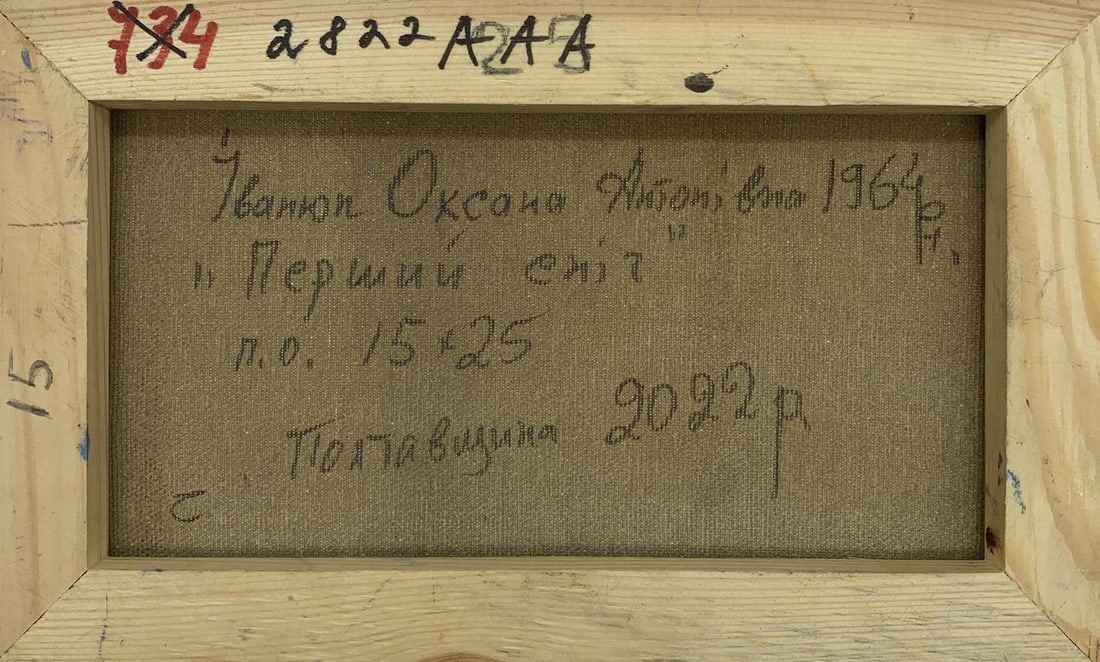 734 2822 AAA
Іванюк Оксана Антонівна 1964 р.н.
"Перший сніг"
п.о. 15×25
Полтавщина 2022 р
15